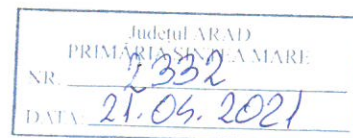 Județul ARAD
PRIMĂRIA ȘINTEA MARE
NR. 2332
DATA 21.04.2021